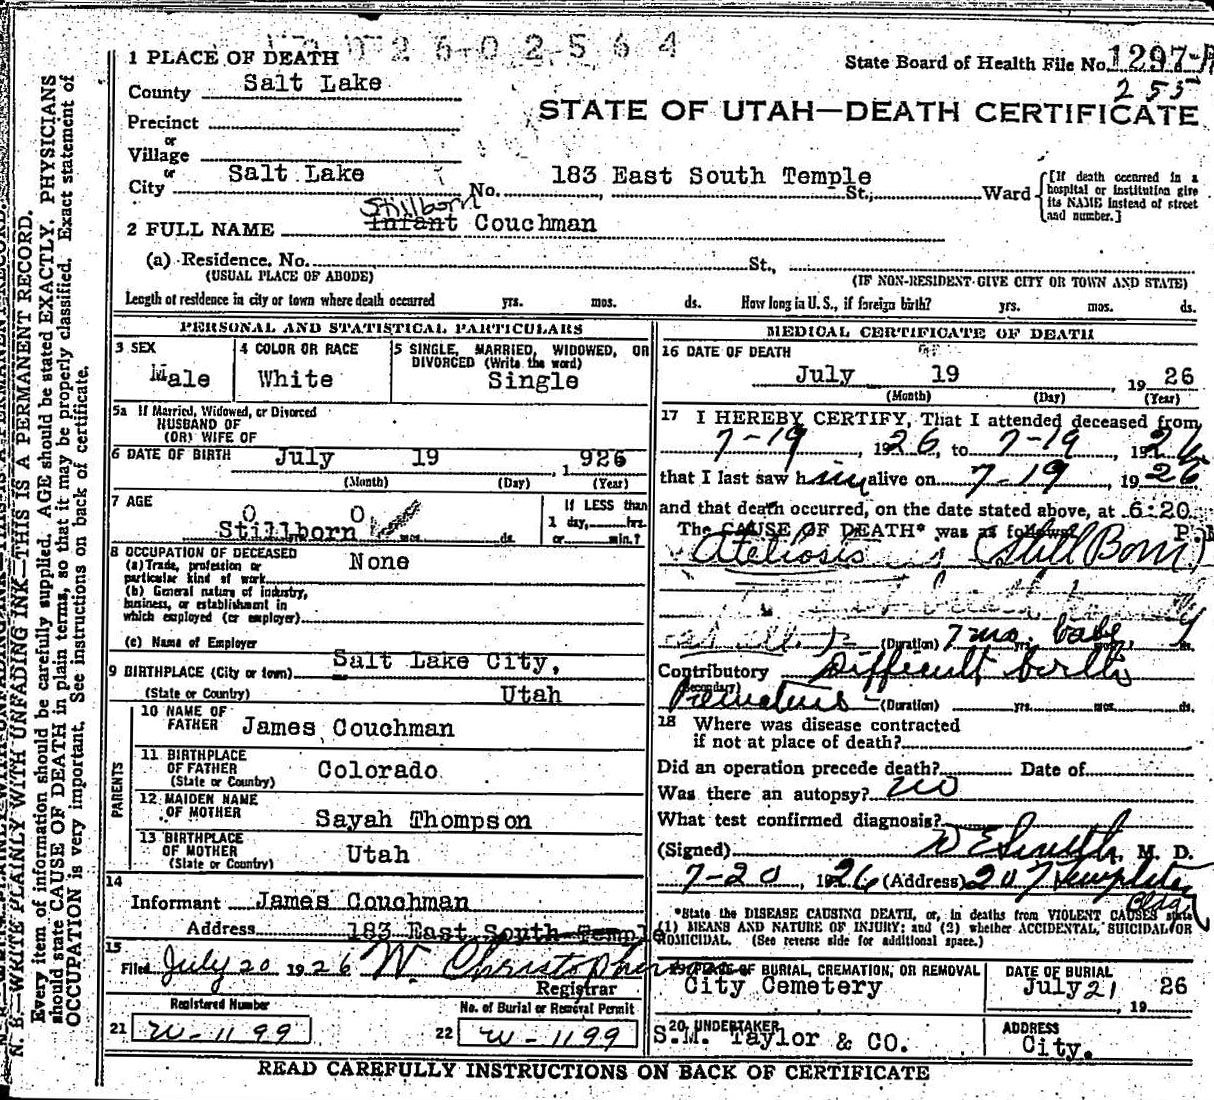 2602564
1 PLACE OF DEATH
State Board of Health File No. 1297-A
255
County Salt Lake
STATE OF UTAH—DEATH CERTIFICATE
Precinct
or
Village
or
City Salt Lake No. 183 East South Temple St., Ward
[If death occurred in a hospital or institution give its NAME instead of street and number.]
Stillborn
2 FULL NAME Infant Couchman
(a) Residence. No. St.,
(USUAL PLACE OF ABODE) (IF NON-RESIDENT GIVE CITY OR TOWN AND STATE)
Length of residence in city or town where death occurred yrs. mos. ds. How long in U. S., if foreign birth? yrs. mos. ds.
PERSONAL AND STATISTICAL PARTICULARS
3 SEX Male
4 COLOR OR RACE White
5 SINGLE, MARRIED, WIDOWED, OR DIVORCED (Write the word) Single
5a If Married, Widowed, or Divorced
HUSBAND OF
(OR) WIFE OF
6 DATE OF BIRTH July 19, 1926
(Month) (Day) (Year)
7 AGE 0 0
Stillborn mos. ds.
If LESS than
1 day, hrs.
or min.?
8 OCCUPATION OF DECEASED None
(a) Trade, profession or
particular kind of work
(b) General nature of industry,
business, or establishment in
which employed (or employer)
(c) Name of Employer
9 BIRTHPLACE (City or town) Salt Lake City,
(State or Country) Utah
PARENTS
10 NAME OF FATHER James Couchman
11 BIRTHPLACE OF FATHER (State or Country) Colorado
12 MAIDEN NAME OF MOTHER Sayah Thompson
13 BIRTHPLACE OF MOTHER (State or Country) Utah
14
Informant James Couchman
Address 183 East South Temple
15
Filed July 20 1926 W. Christopherson
Registrar
Registered Number
21 W-1199
No. of Burial or Removal Permit
22 W-1199
MEDICAL CERTIFICATE OF DEATH
16 DATE OF DEATH
July 19, 1926
(Month) (Day) (Year)
17 I HEREBY CERTIFY, That I attended deceased from
7-19, 1926, to 7-19, 1926
that I last saw him alive on 7-19, 1926
and that death occurred, on the date stated above, at 6:20 P. M
The CAUSE OF DEATH* was as follows:
Ateliosis (Still Born)
(Duration) 7 mo. babe
Contributory Difficult birth
(Secondary)
Premature (Duration) yrs. mos. ds.
18 Where was disease contracted
if not at place of death?
Did an operation precede death? Date of
Was there an autopsy? no
What test confirmed diagnosis?
(Signed) W E Smith, M. D.
7-20, 1926 (Address) 207 Templeton
Bldg
*State the DISEASE CAUSING DEATH, or, in deaths from VIOLENT CAUSES state
(1) MEANS AND NATURE OF INJURY; and (2) whether ACCIDENTAL, SUICIDAL OR
HOMICIDAL. (See reverse side for additional space.)
19 PLACE OF BURIAL, CREMATION, OR REMOVAL
City Cemetery
DATE OF BURIAL
July 21, 1926
20 UNDERTAKER
S.M. Taylor & CO.
ADDRESS
City.
READ CAREFULLY INSTRUCTIONS ON BACK OF CERTIFICATE
N. B.—WRITE PLAINLY WITH UNFADING INK—THIS IS A PERMANENT RECORD.
Every item of information should be carefully supplied. AGE should be stated EXACTLY. PHYSICIANS
should state CAUSE OF DEATH in plain terms, so that it may be properly classified. Exact statement of
OCCUPATION is very important. See instructions on back of certificate.